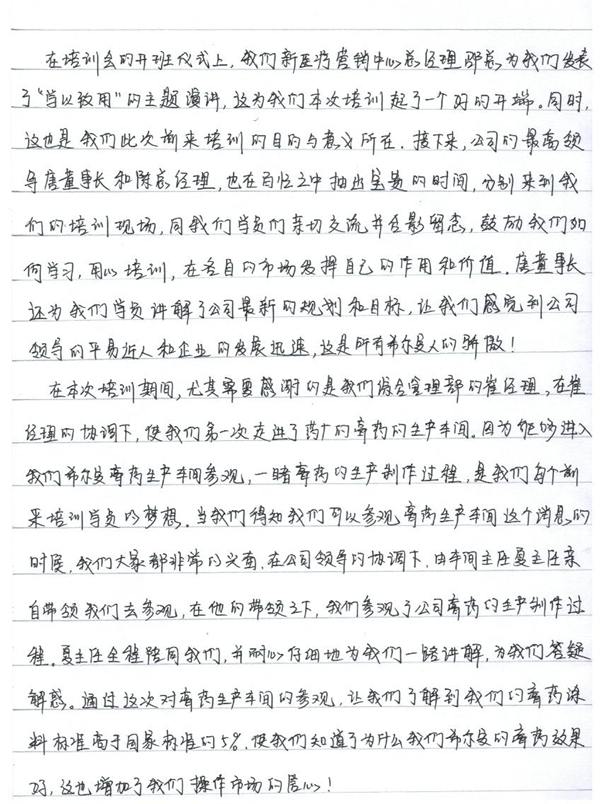 在培训会的开班仪式上，我们新医疗营销中心总经理邵总为我们发表
了“学以致用”的主题演讲，这为我们本次培训起了一个好的开端。同时，
这也是我们此次前来培训的目的与意义所在。接下来，公司的最高领
导唐董事长和陈总经理，也在百忙之中抽出宝贵的时间，分别来到我
们的培训现场，同我们学员们亲切交流并合影留念，鼓励我们如
何学习，用心培训，在各自的市场发挥自己的作用和价值。唐董事长
还为我们学员讲解了公司最新的规划和目标，让我们感觉到公司
领导的平易近人和企业的发展迅速，这是所有希尔曼人的骄傲！
在本次培训期间，尤其需要感谢的是我们综合管理部的崔经理，在崔
经理的协调下，使我们第一次走进了药厂的膏药的生产车间。因为能够进入
我们希尔曼膏药生产车间参观，一睹膏药的生产制作过程，是我们每个前
来培训学员的梦想。当我们得知我们可以参观膏药生产车间这个消息的
时候，我们大家都非常的兴奋，在公司领导的协调下，由车间主任夏主任亲
自带领我们去参观，在他的带领之下，我们参观了公司膏药的生产制作过
程。夏主任全程陪同我们，并耐心仔细地为我们一路讲解，为我们答疑
解惑。通过这次对膏药生产车间的参观，让我们了解到我们的膏药涂
料标准高于国家标准的5%，使我们知道了为什么我们希尔曼的膏药效果
好，这也增加了我们操作市场的信心！